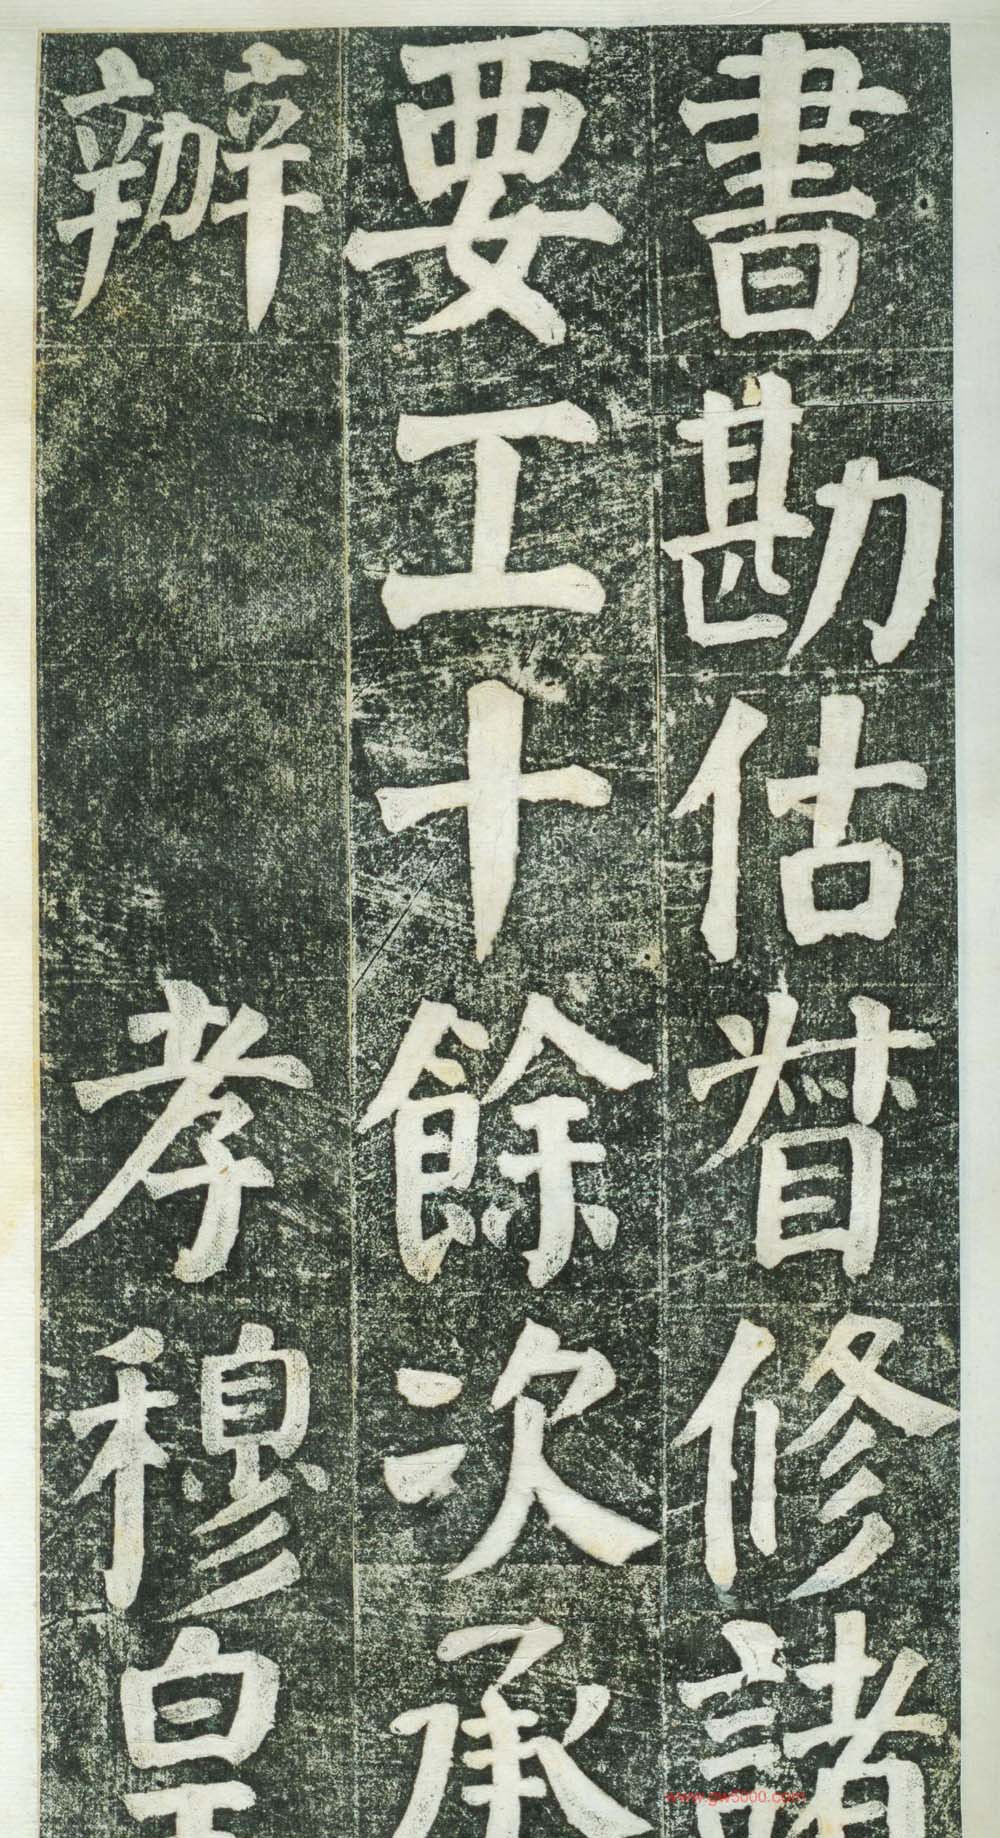 書勘估督修諸
要工十餘次承
辦孝穆皇
www.gw5000.com